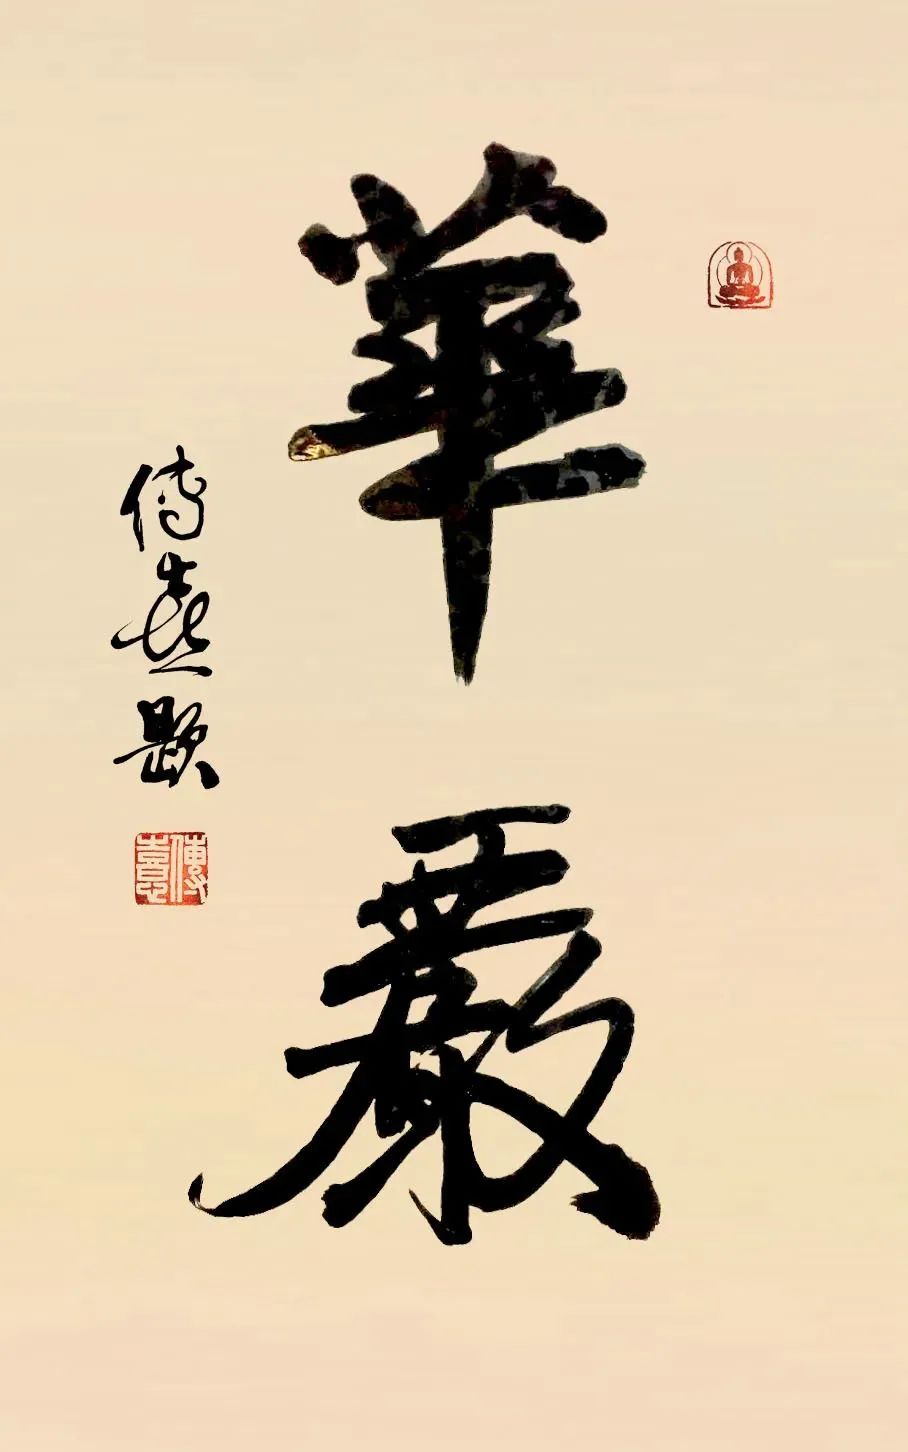 華嚴
傳喜題
傳喜